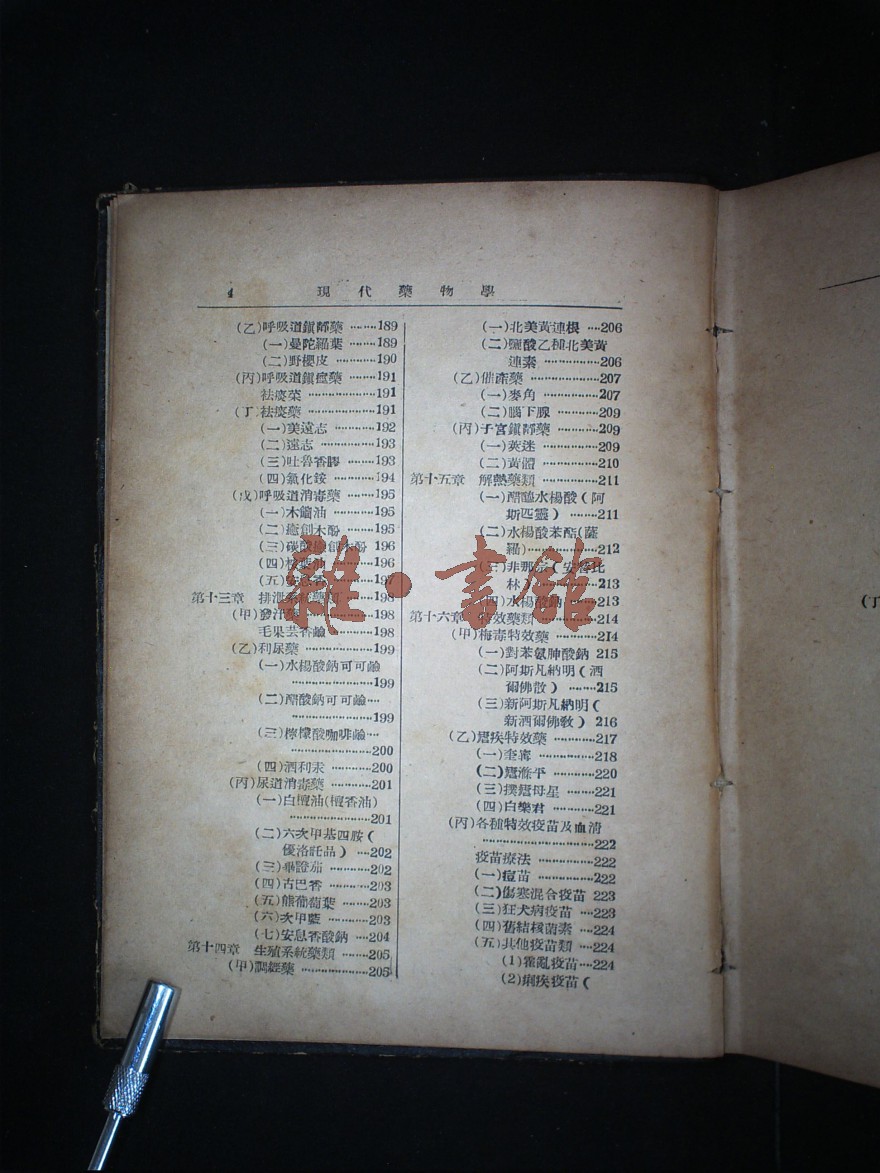 4 現代藥物學
(乙)呼吸道鎭靜藥 ········189
(一)曼陀羅葉 ········189
(二)野櫻皮 ············190
(丙)呼吸道鎭痙藥 ······191
祛痰菜 ················191
(丁)祛痰藥 ············191
(一)美遠志 ············192
(二)遠志 ··············193
(三)吐魯香膠 ········193
(四)氯化銨 ············194
(戊)呼吸道消毒藥 ······195
(一)木鎦油 ············195
(二)癒創木酚 ········195
(三)碳酸癒創木酚 196
(四)桉葉油 ··········196
(五)安息香 ··········197
第十三章 排泄系統藥類 ······198
(甲)發汗藥 ············198
毛果芸香鹼 ··········198
(乙)利尿藥 ············199
(一)水楊酸鈉可可鹼
····················199
(二)醋酸鈉可可鹼····
····················199
(三)檸檬酸咖啡鹼····
····················200
(四)洒利汞 ··········200
(丙)尿道消毒藥 ········201
(一)白檀油(檀香油)
····················201
(二)六次甲基四胺(
優洛託品) ····202
(三)蓽證茄 ··········202
(四)古巴香 ··········203
(五)熊葡萄葉 ········203
(六)次甲藍 ··········203
(七)安息香酸鈉 ····204
第十四章 生殖系統藥類 ······205
(甲)調經藥 ············205
(一)北美黃連根 ····206
(二)鹽酸乙種北美黃
連素 ················206
(乙)催產藥 ············207
(一)麥角 ··············207
(二)腦下腺 ··········209
(丙)子宮鎭靜藥 ········209
(一)莢迷 ··············209
(二)黃體 ··············210
第十五章 解熱藥類 ··········211
(一)醋醯水楊酸(阿
斯匹靈) ········211
(二)水楊酸苯酯(薩
羅)················212
(三)非那宗(安替比
林)················213
(四)水楊酸鈉 ······213
第十六章 特效藥類 ··········214
(甲)梅毒特效藥 ········214
(一)對苯氨胂酸鈉 215
(二)阿斯凡納明(洒
爾佛散) ······215
(三)新阿斯凡納明(
新洒爾佛散) 216
(乙)瘧疾特效藥 ········217
(一)奎寧 ··············218
(二)瘧滌平 ··········220
(三)撲瘧母星 ········221
(四)白樂君 ··········221
(丙)各種特效疫苗及血清
························222
疫苗療法 ············222
(一)痘苗 ··············222
(二)傷寒混合疫苗 223
(三)狂犬病疫苗 ····223
(四)舊結核菌素 ····224
(五)其他疫苗類 ····224
(1)霍亂疫苗····224
(2)痢疾疫苗(
雜·書館
(丁